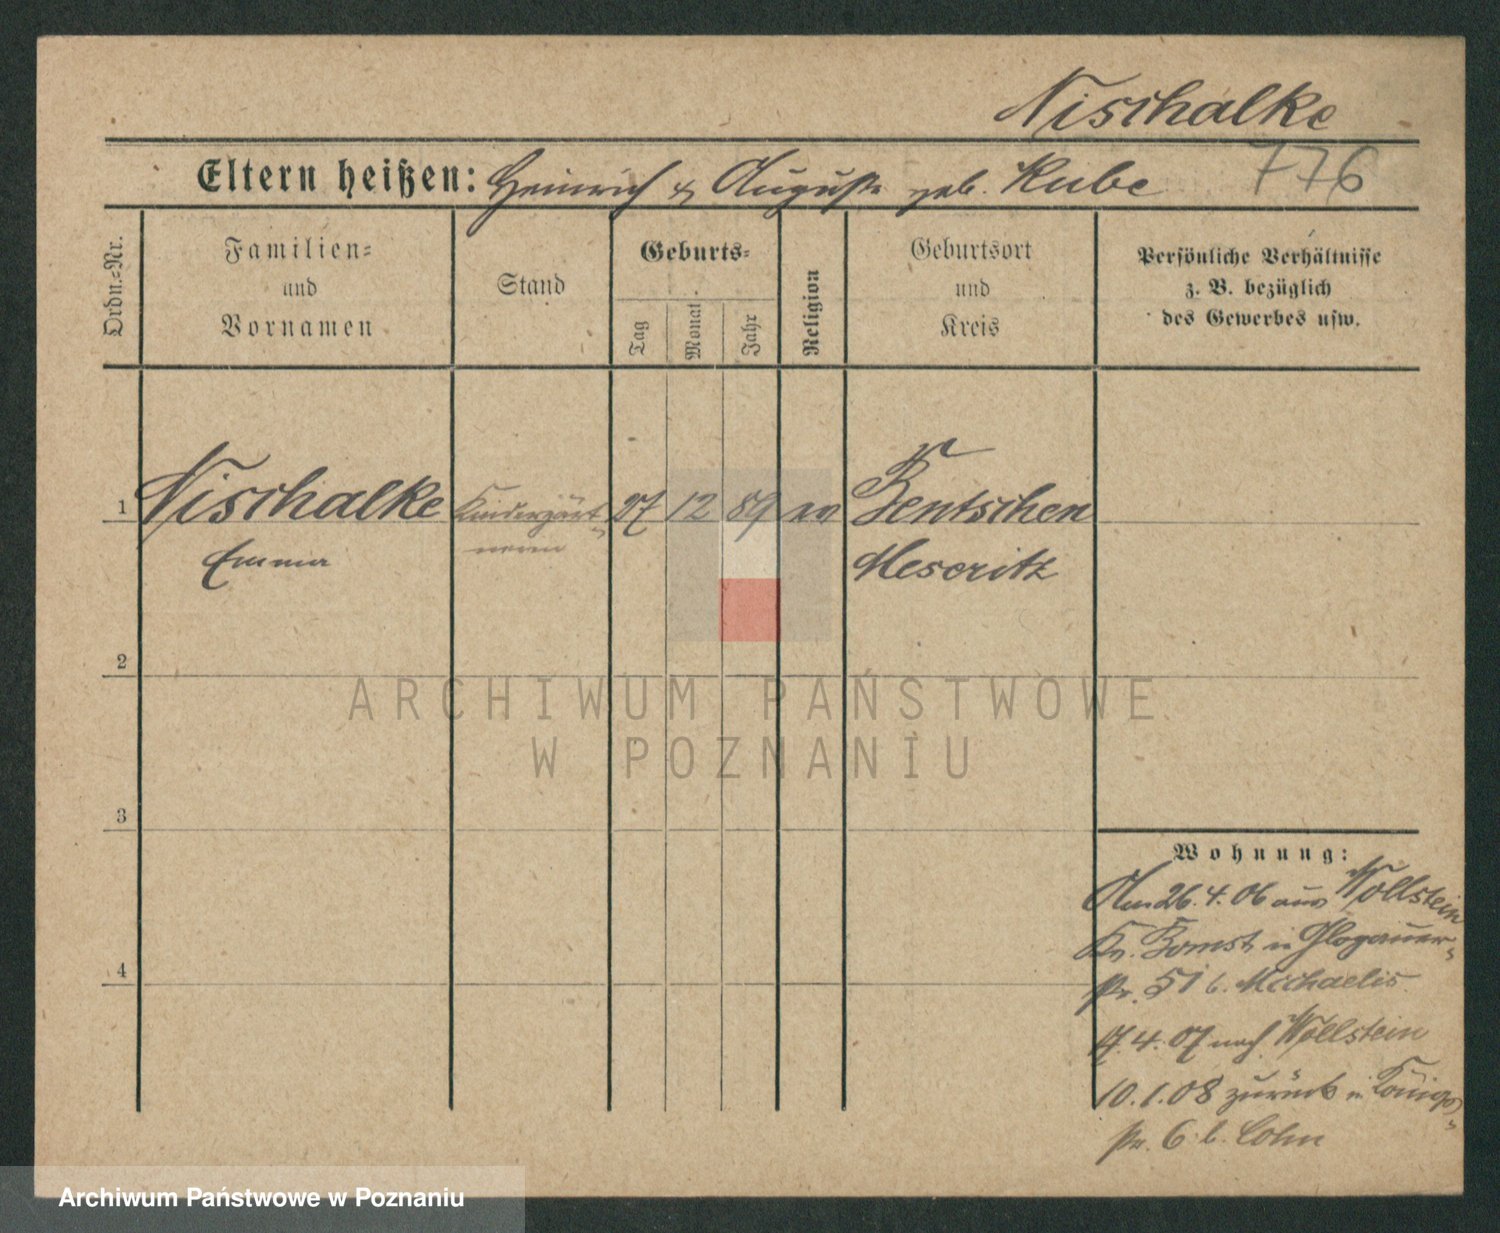 Nischalke
Eltern heißen: Heinrich & Auguste geb. Kube 776
Ordn.=Nr.
Familien=
und
Vornamen
Stand
Geburts=
Tag
Monat
Jahr
Religion
Geburtsort
und
Kreis
Persönliche Verhältnisse
z. B. bezüglich
des Gewerbes usw.
1 Nischalke Kindergärt= 27 12 89 ev Bentschen
Emma nerin Meseritz
2
3
4
Wohnung:
Am 26.4.06 aus Wollstein
Kr. Bomst in Glogauer=
str. 51 b. Michaelis
17.4.07 nach Wollstein
10.1.08 zurück in Königs=
str. 6 b. Cohn
ARCHIWUM PAŃSTWOWE
W POZNANIU
Archiwum Państwowe w Poznaniu